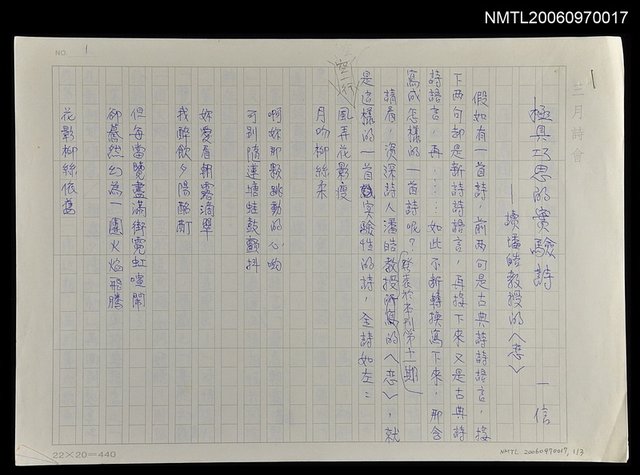 NMTL20060970017
NO. 1
1
三月詩會
極具巧思的實驗詩
——讀潘皓教授的〈戀〉
一信
假如有一首詩,前兩句是古典詩詩語言,接
下兩句却是新詩詩語言,再接下來又是古典詩
詩語言,再……如此不斷轉換寫下來,那會
寫成怎樣的一首詩呢?
請看,資深詩人潘皓教授所寫的〈戀〉,就
(發表於本刊第十一期)
是這樣的一首實驗性的詩,全詩如左:
空一行
風弄花影瘦
月吻柳絲柔
啊妳那顆跳動的心喲
可別隨蓮塘蛙鼓顫抖
妳愛看朝露滴翠
我醉飲夕陽酩酊
但每當覽盡滿街霓虹喧鬧
卻驀然幻為一團火焰飛騰
花影柳絲依舊
22×20=440
NMTL 20060970017, 1/3